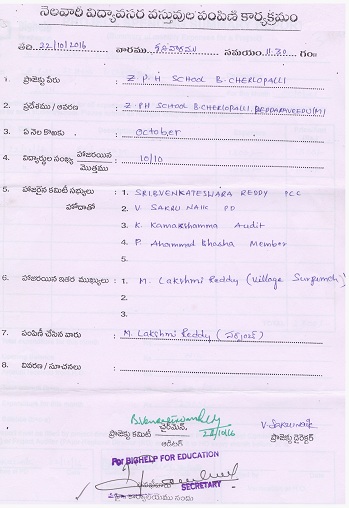 నెలవారీ విద్యావసర వస్తువుల పంపిణీ కార్యక్రమం
తేది. 22/10/2016 వారము శనివారము సమయం. 11.30 గం
1. ప్రాజెక్టు పేరు : Z.P.H SCHOOL B.CHERLOPALLI
2. ప్రదేశము / ఆవరణ : Z.PH SCHOOL B.CHERLOPALLI, PEDDARAVEEDU(M)
3. ఏ నెల కొఱకు : October
4. విద్యార్థుల సంఖ్య హాజరయిన/మొత్తము : 10/10
5. హాజరైన కమిటీ సభ్యులు : 1. SRI.B.VENKATESWARA REDDY PCC
హోదాతో 2. V SAKRU NAIK PD
3. K. Kamakshamma Audit
4. P. Ahammad Bhasha Member
5.
6. హాజరయిన ఇతర ముఖ్యులు : 1. M. Lakshmi Reddy (Village Surpunch)
2.
3.
7. పంపిణీ చేసిన వారు : M. Lakshmi Reddy (సర్పంచ్)
8. వివరణ / సూచనలు :
22/10/16
V. Sakru naik
ప్రాజెక్టు కమిటీ ఛైర్మెన్,
ఆడిటర్
ప్రాజెక్టు డైరెక్టర్
For BIGHELP FOR EDUCATION
SECRETARY
కార్యాలయము నందు